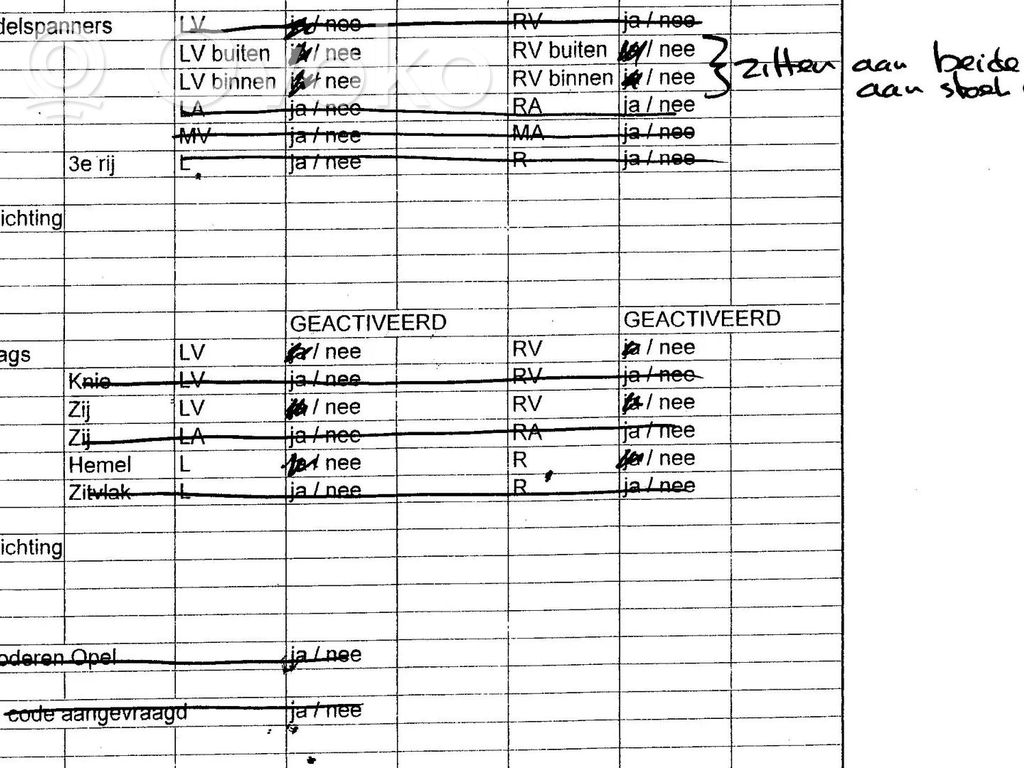 delspanners LV ja / nee RV ja / nee
LV buiten ja / nee RV buiten ja / nee
LV binnen ja / nee RV binnen ja / nee
zitten aan beide
aan stoel
LA ja / nee RA ja / nee
MV ja / nee MA ja / nee
3e rij L ja / nee R ja / nee
ichting
GEACTIVEERD GEACTIVEERD
ags LV ja / nee RV ja / nee
Knie LV ja / nee RV ja / nee
Zij LV ja / nee RV ja / nee
Zij LA ja / nee RA ja / nee
Hemel L ja / nee R ja / nee
Zitvlak L ja / nee R ja / nee
ichting
oderen Opel ja / nee
code aangevraagd ja / nee